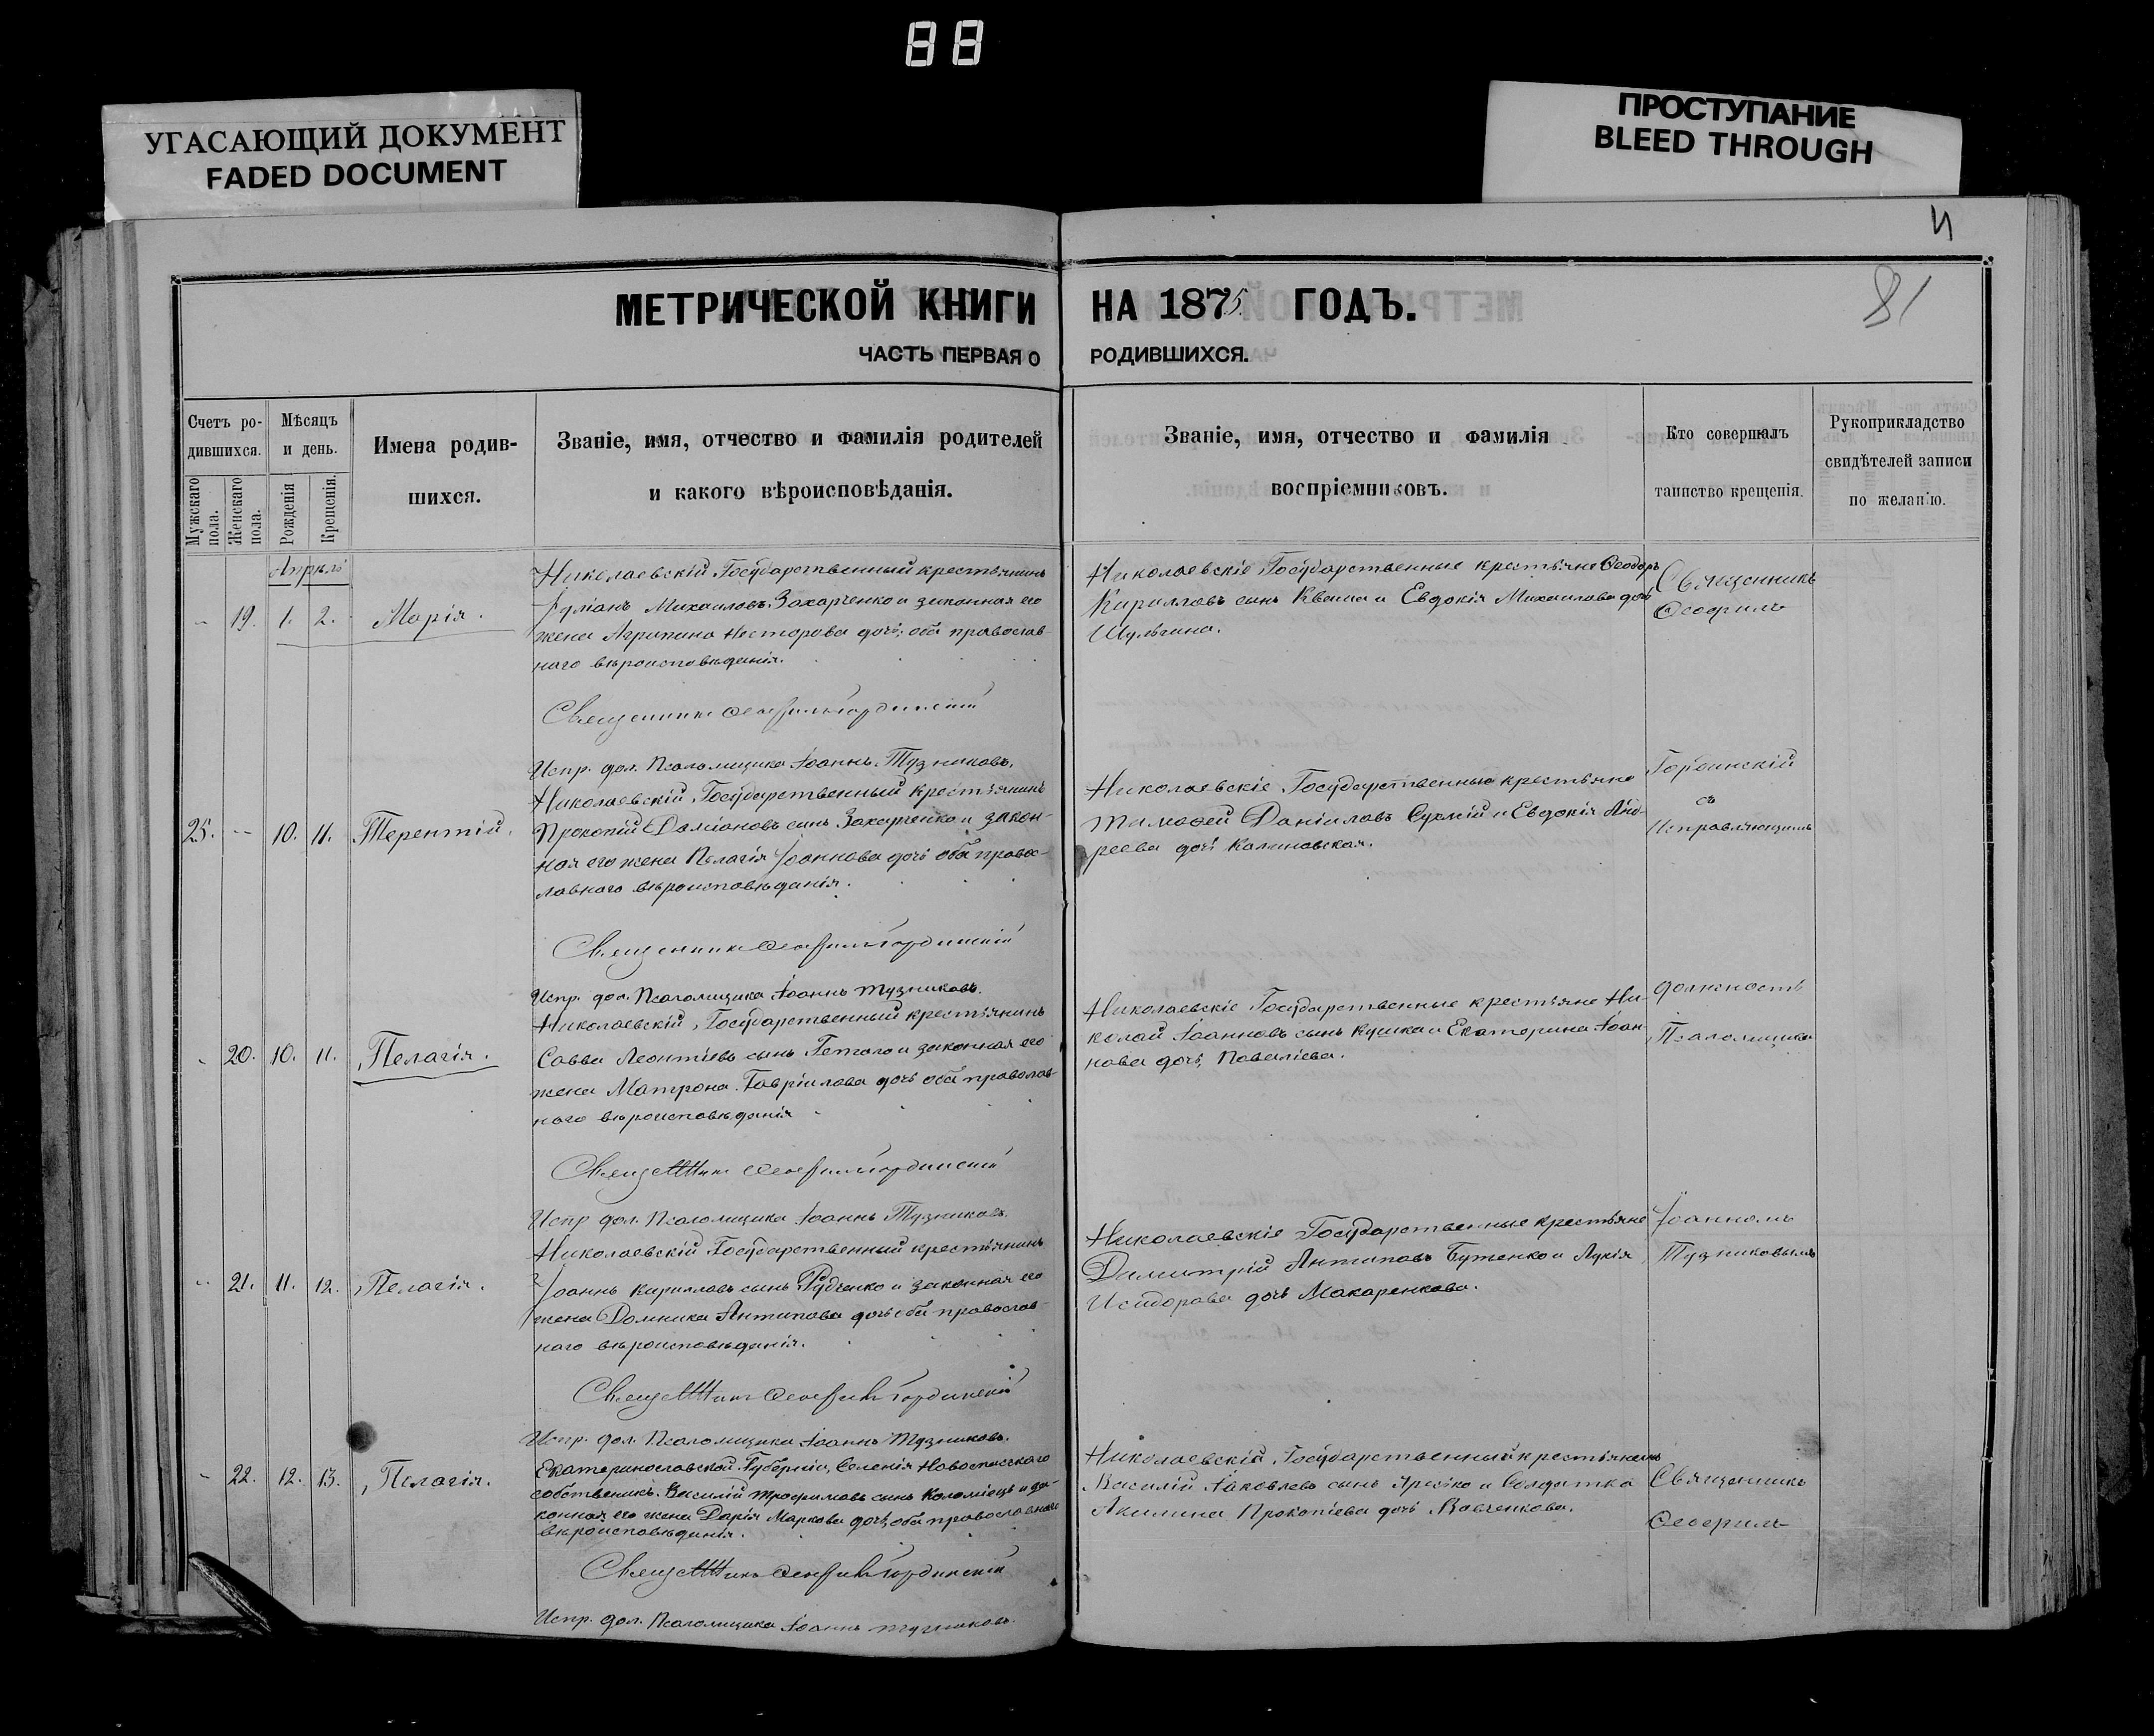 88
УГАСАЮЩИЙ ДОКУМЕНТ
FADED DOCUMENT
ПРОСТУПАНИЕ
BLEED THROUGH
81
МЕТРИЧЕСКОЙ КНИГИ НА 1875 ГОДЪ.
ЧАСТЬ ПЕРВАЯ О РОДИВШИХСЯ.
Счетъ ро-
дившихся.
Мужскаго пола.
Женскаго пола.
Мѣсяцъ
и день.
Рожденія
Крещенія.
Имена родив-
шихся.
Званіе, имя, отчество и фамилія родителей
и какого вѣроисповѣданія.
Званіе, имя, отчество и фамилія
воспріемниковъ.
Кто совершалъ
таинство крещенія.
Рукоприкладство
свидѣтелей записи
по желанію.
Апрѣль
19. 1. 2. Марія.
Николаевскій Государственный крестьянинъ
Михаиловъ Захарченко и законная его
жена Агрипина Несторова дочь; оба православ-
наго вѣроисповѣданія.
Николаевскіе Государственные крестьяне Ѳеодоръ
Кирилловъ сынъ Кваша и Евдокія Михаилова дочь
Шульгина.
Священникъ
Ѳеофилъ
Священникъ Ѳеофилъ Гординскій
Испр. дол. Псаломщика Іоаннъ Тузниковъ.
25. -- 10. 11. Терентій.
Николаевскій Государственный крестьянинъ
Прокопій Даміановъ сынъ Захарченко и закон-
ная его жена Пелагія Іоаннова дочь оба правос-
лавнаго вѣроисповѣданія.
Николаевскіе Государственные крестьяне
Тимоѳей Даніиловъ и Евдокія Анд-
реева дочь Калиновская.
Гординскій
съ
Исправляющимъ
Священникъ Ѳеофилъ Гординскій
Испр. дол. Псаломщика Іоаннъ Тузниковъ.
20. 10. 11. Пелагія.
Николаевскій Государственный крестьянинъ
Савва Леонтіевъ сынъ и законная его
жена Матрона Гавріилова дочь оба православ-
наго вѣроисповѣданія
Николаевскіе Государственные крестьяне Ни-
колай Іоанновъ сынъ Кушка и Екатерина Іоан-
нова дочь,
должность
Псаломщика
Священникъ Ѳеофилъ Гординскій
Испр дол. Псаломщика Іоаннъ Тузниковъ.
21. 11. 12. Пелагія.
Николаевскій Государственный крестьянинъ
Іоаннъ Кирилловъ сынъ Рудченко и законная его
жена Домника Антипова дочь оба православ-
наго вѣроисповѣданія.
Николаевскіе Государственные крестьяне
Димитрій Антиповъ Бутенко и Лукія
Исидорова дочь Макаренкова.
Іоанномъ
Тузниковымъ
Священникъ Ѳеофилъ Гординскій
Испр. дол. Псаломщика Іоаннъ Тузниковъ.
22. 12. 13. Пелагія.
Екатеринославской Губерніи, Селенія Новоспасскаго
собственникъ Василій Трофимовъ сынъ Коломіецъ и за-
конная его жена Дарія Маркова дочь, оба православнаго
вѣроисповѣданія.
Николаевскій Государственный крестьянинъ
Василій Іаковлевъ сынъ и Солдатка
Акилина Прокопіева дочь Вовченкова.
Священникъ
Ѳеофилъ
Священникъ Ѳеофилъ Гординскій
Испр. дол. Псаломщика Іоаннъ Тузниковъ.